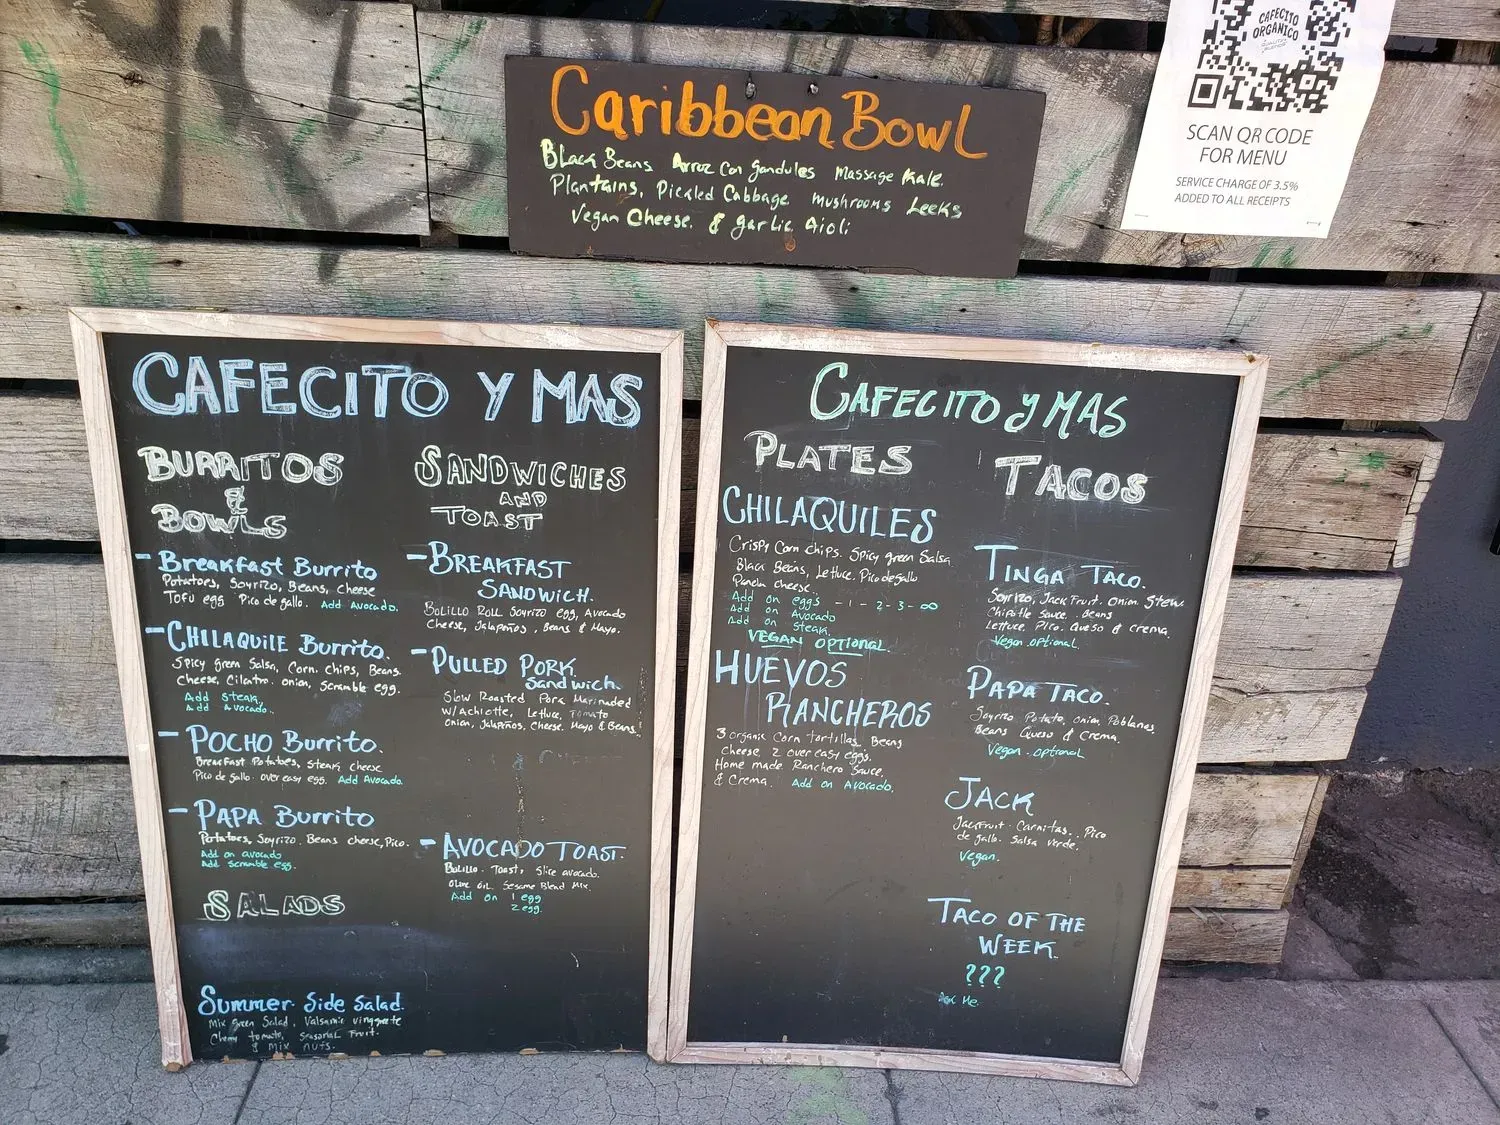 Caribbean Bowl
Black Beans Arroz Con gandules Massage Kale.
Plantains, Pickled Cabbage mushrooms Leeks
Vegan Cheese. & garlic Aioli
CAFECITO
ORGANICO
SCAN QR CODE
FOR MENU
SERVICE CHARGE OF 3.5%
ADDED TO ALL RECEIPTS
CAFECITO Y MAS
BURRITOS
&
BOWLS
- Breakfast Burrito
Potatoes, Soyrizo, Beans, cheese
Tofu egg Pico de gallo. Add Avocado.
- CHILAQUILE Burrito.
Spicy green Salsa, Corn. chips, Beans.
Cheese, Cilantro. onion, Scramble egg.
Add Steak,
Add Avocado.
- POCHO Burrito.
Breakfast Potatoes, Steak cheese
Pico de gallo. over easy egg. Add Avocado.
- PAPA Burrito
Potatoes, Soyrizo. Beans cheese, Pico.
Add on avocado
Add scramble egg.
SALADS
Summer Side Salad.
Mix green Salad, Valsamic vinggrete
Cherry tomato, Seasonal Fruit.
& mix nuts.
SANDWICHES
AND
TOAST
- BREAKFAST
SANDWICH.
BOLILLO ROLL Soyrizo egg, Avocado
Cheese, Jalapeños, Beans & Mayo.
- PULLED PORK
Sandwich.
Slow Roasted Pork Marinaded
W/Achiotte, Lettuce, Tomato
onion, Jalapeños, Cheese. Mayo & Beans.
- AVOCADO TOAST.
Bolillo. Toast, Slice avocado.
Olive oil. Sesame Blend Mix.
Add on 1 egg
2 egg.
CAFECITO Y MAS
PLATES
CHILAQUILES
Crispy Corn chips. Spicy green Salsa
Black Beans, Lettuce. Pico de gallo
Panela cheese.
Add on eggs - 1 - 2 - 3 - ∞
Add on Avocado
Add on Steak
VEGAN OPTIONAL
HUEVOS
RANCHEROS
3 organic Corn tortillas Beans
Cheese 2 over easy eggs.
Home made Ranchero Sauce,
& Crema. Add on Avocado.
TACOS
TINGA TACO.
Soyrizo, Jack Fruit. Onion Stew
Chipotle Sauce. Beans
Lettuce, Pico. Queso & crema.
Vegan optional.
PAPA TACO.
Soyrizo Potato, onion Poblanos
Beans Queso & Crema.
Vegan. optional
JACK
JackFruit. Carnitas. Pico
de gallo. Salsa verde.
Vegan.
TACO OF THE
WEEK.
???
Ask Me.